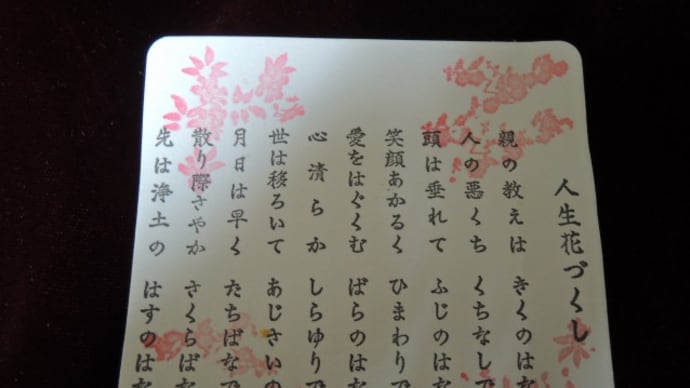 人生花づくし
親の教えは きくのはな
人の悪くち くちなしで
頭は垂れて ふじのはな
笑顔あかるく ひまわりで
愛をはぐくむ ばらのはな
心清らか しらゆりで
世は移ろいて あじさいの
月日は早く たちばなで
散り際さやか さくらばな
先は浄土の はすのはな